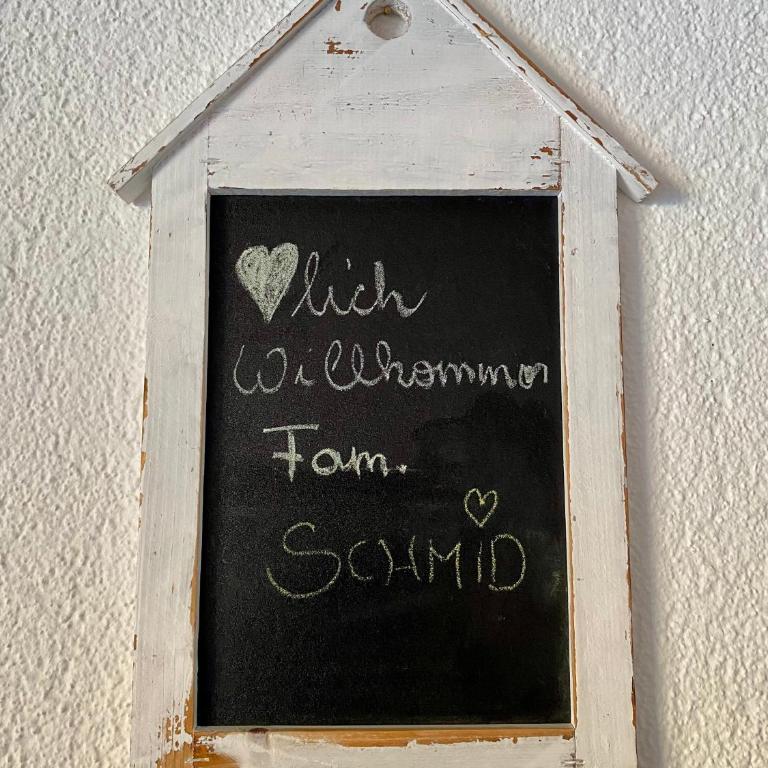 ♥lich
Willkommen
Fam.
SCHMID